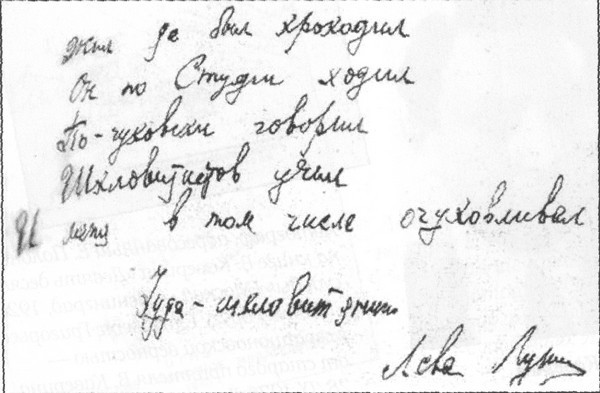 Жил да был крокодил
Он по Студии ходил
По-чуковски говорил
Шкловитистов учил
И меня в том числе очуковливал
Лева Лунц